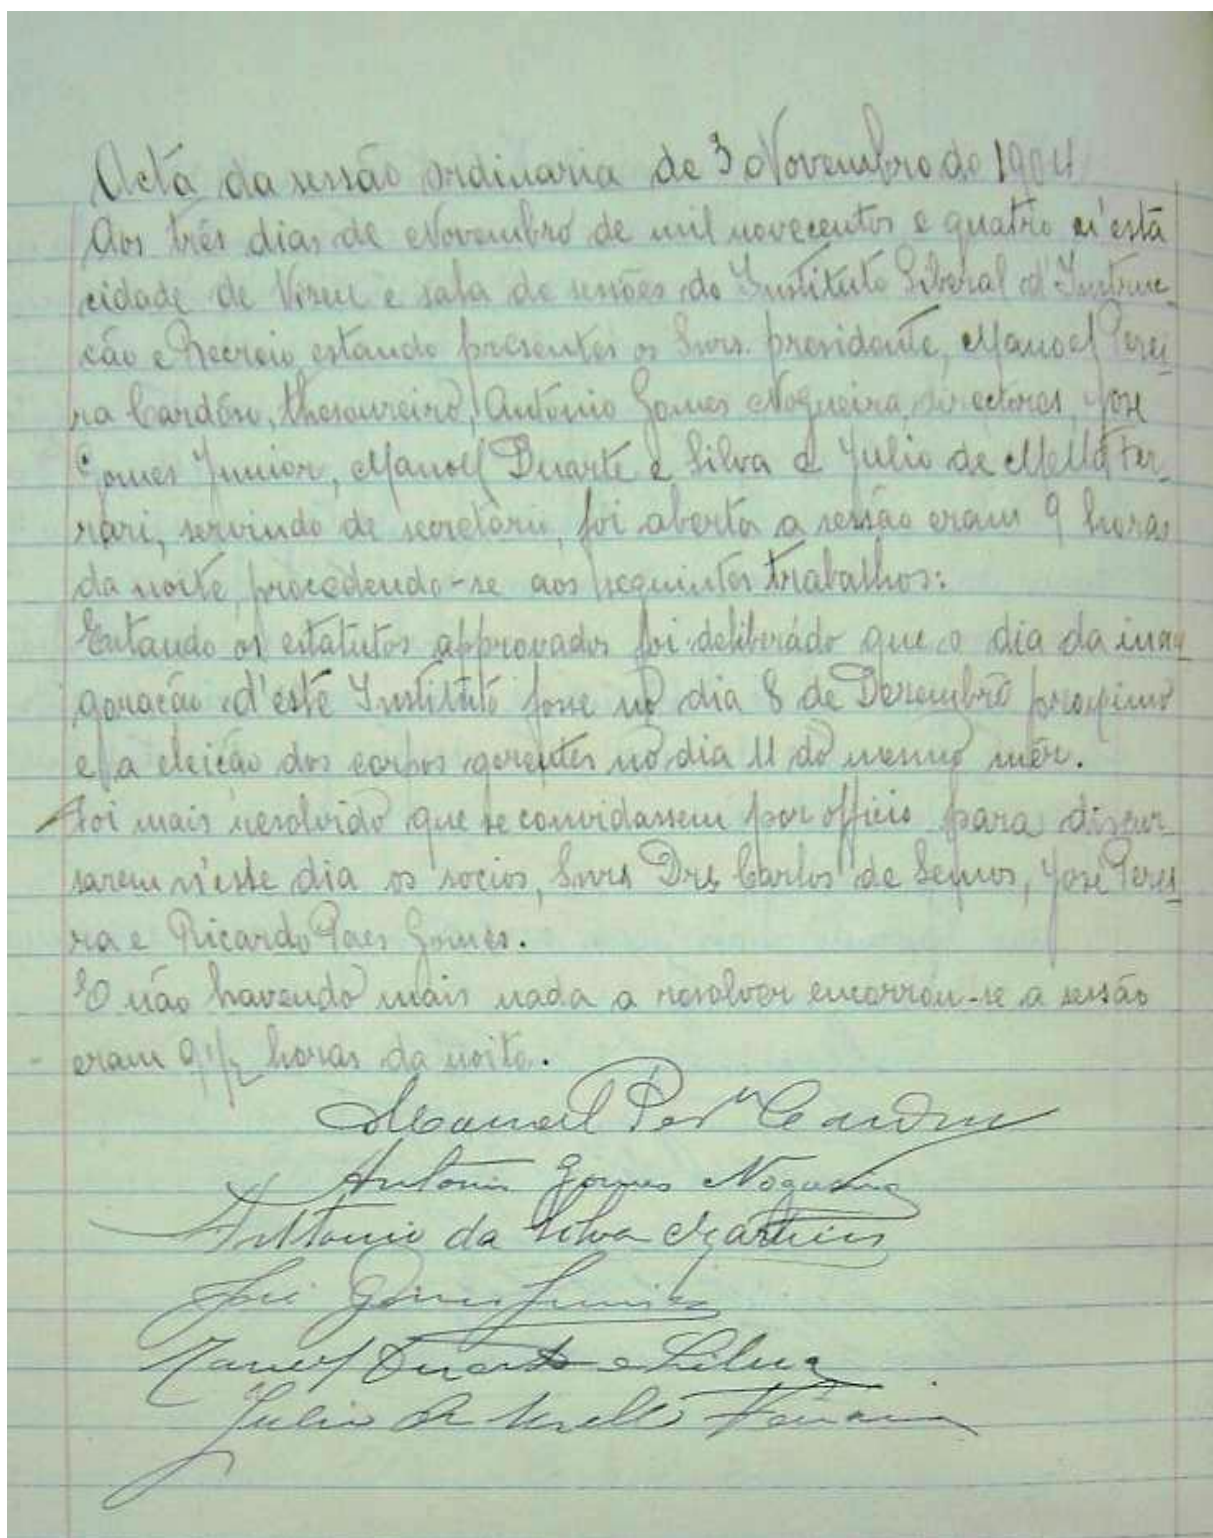 Acta da sessão ordinaria de 3 Novembro de 1904
Aos três dias de Novembro de mil novecentos e quatro n'esta
cidade de Vizeu e sala de sessões do Instituto Liberal d'Instruc-
ção e Recreio, estando presentes os Snrs. presidente, Manoel Perei-
ra Cardoso, thesoureiro, Antonio Gomes Nogueira, directores, José
Gomes Junior, Manoel Duarte e Silva e Julio de Mello Fer-
rari, servindo de secretario, foi aberta a sessão eram 9 horas
da noite, procedendo-se aos seguintes trabalhos:
Estando os estatutos approvados foi deliberádo que o dia da inau-
goração d'este Instituto fosse no dia 8 de Dezembro proximo
e a eleição dos corpos gerentes no dia 11 do mesmo mêz.
Foi mais resolvido que se convidassem por officio para discur-
sarem n'esse dia os socios, Snrs Drs Carlos de Lemos, José Perei-
ra e Ricardo Paes Gomes.
E não havendo mais nada a resolver encerrou-se a sessão
eram 9 1/2 horas da noite.
Manoel Per.ª Cardoso
Antonio Gomes Nogueira
Antonio da Silva Martins
José Gomes Junior
Manoel Duarte e Silva
Julio de Mello Ferrari